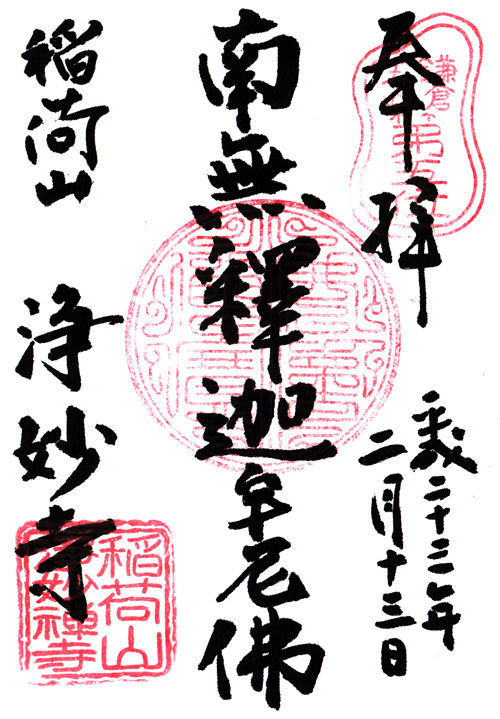 奉拝
鎌倉
第五
平成二十三年
二月十三日
南無釋迦牟尼佛
稲荷山
浄妙寺
稲荷山
浄妙禅寺